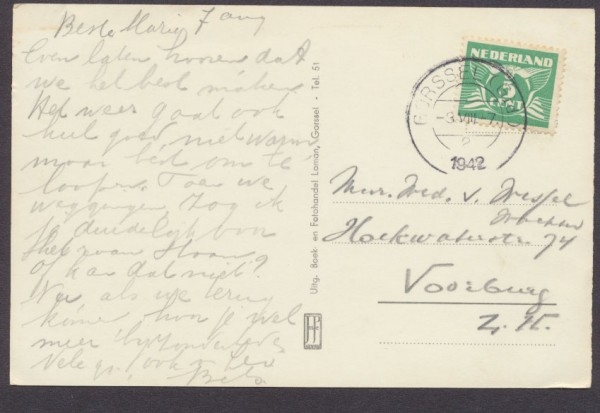 Beste Marie, 7 aug
Even laten hooren dat
we het best maken.
Het weer gaat ook
heel goed niet warm
maar best om te
loopen. Toen we
weggingen zag ik
je duidelijk voor
het raam staan
of kan dat niet?
Nu, als we terug
komen hoor je wel
meer bijzonderheden
Vele gr. ook v.
Bets
Uitg. Boek- en Fotohandel Loman, Gorssel - Tel. 51
JP
NEDERLAND
5
CENT
GORSSEL
-8.VIII.-7
1942
Mw. Wed. v. Wessel
Hoekwaterstr. 74
Voorburg
Z.H.